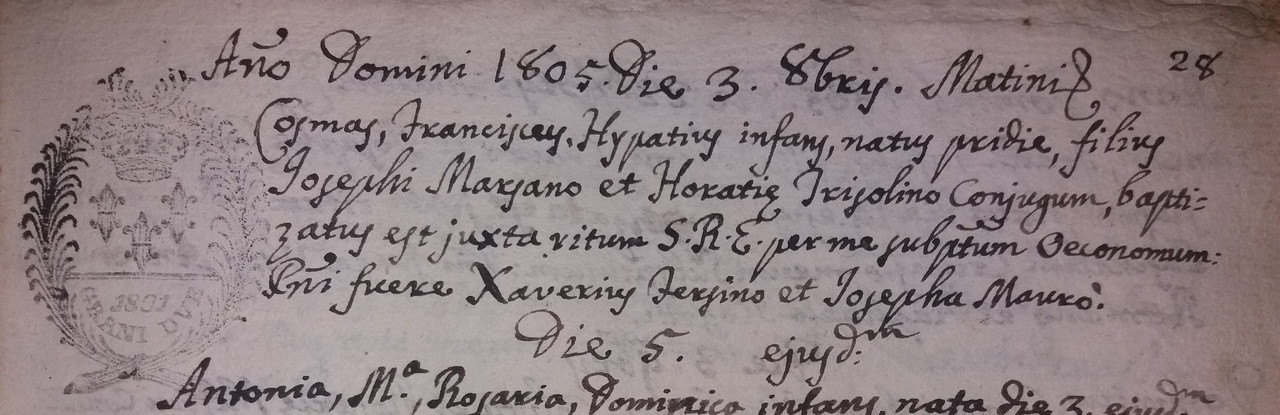 Año Domini 1805. Die 3. 8bris. Matini
28
Cosmas, Franciscus, Hypatius infans, natus pridie, filius
Josephi Marsano et Horatię Trisolino Conjugum, bapti=
zatus est juxta ritum S. R. E. per me subp̃tum Oeconomum:
P̃ni fuere Xaverius Tersino et Josepha Mauro.
Die 5. ejusd:m
Antonia, M.a, Rosaria, Dominica infans, nata die 3. ejusdm
1801
GRANI DUE